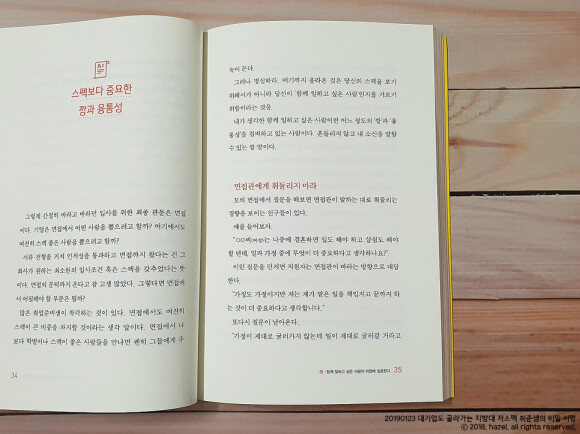 스펙보다 중요한
깡과 융통성
그렇게 간절히 바라고 바라던 입사를 위한 최종 관문은 면접
이다. 기업은 면접에서 어떤 사람을 뽑으려고 할까? 여기에서도
여전히 스펙 좋은 사람을 뽑으려고 할까?
서류 전형을 거쳐 인적성을 통과하고 면접까지 왔다는 건 그
회사가 원하는 최소한의 입사조건 혹은 스펙을 갖추었다는 뜻
이다. 면접의 문턱까지 온다고 참 고생 많았다. 그렇다면 면접에
서 어필해야 할 부분은 뭘까?
많은 취업준비생이 착각하는 것이 있다. 면접에서도 여전히
스펙이 큰 비중을 차지할 것이라는 생각 말이다. 면접에서 나
보다 학벌이나 스펙이 좋은 사람들을 만나면 괜히 그들에게 주
34
눅이 든다.
그러나 명심하라. 여기까지 올라온 것은 당신의 스펙을 보기
위해서가 아니라 당신이 '함께 일하고 싶은 사람'인지를 가르기
위함이라는 것을.
내가 생각한 함께 일하고 싶은 사람이란 어느 정도의 '깡'과 '융
통성'을 겸비하고 있는 사람이다. 흔들리지 않고 내 소신을 말할
수 있는 깡 말이다.
면접관에게 휘둘리지 마라
모의 면접에서 질문을 해보면 면접관이 말하는 대로 휘둘리는
경향을 보이는 친구들이 있다.
예를 들어보자.
"○○씨(여성)는 나중에 결혼하면 일도 해야 하고 살림도 해야
할 텐데, 일과 가정 중에 무엇이 더 중요하다고 생각하나요?"
이런 질문을 던지면 지원자는 면접관이 바라는 방향으로 대답
한다.
"가정도 가정이지만 저는 제가 맡은 일을 책임지고 끝까지 하
는 것이 더 중요하다고 생각합니다."
또다시 질문이 날아온다.
"가정이 제대로 굴러가지 않는데 일이 제대로 굴러갈 거라고
1장 | 함께 일하고 싶은 사람이 취업에 성공한다 35
20190123 대기업도 골라가는 지방대 저스펙 취준생의 비밀 서평
ⓒ 2018, hazel, all rights reserved.